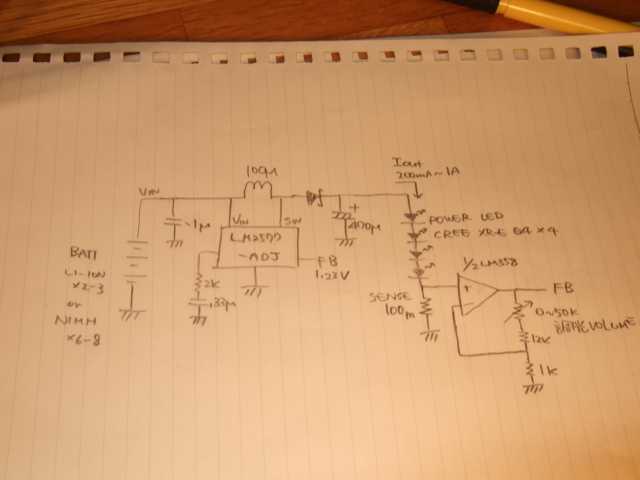 100μ
Iout
200mA~1A
VIN
.1μ
VIN
SW
LM2577
-ADJ
+
470μ
FB
1.23V
2K
.33μ
BATT
LI-ION
×2-3
or
NIMH
×6-8
POWER LED
CREE XR-E ×4
1/2 LM358
+
-
FB
SENSE
100m
0~50K
VOLUME
12K
1K